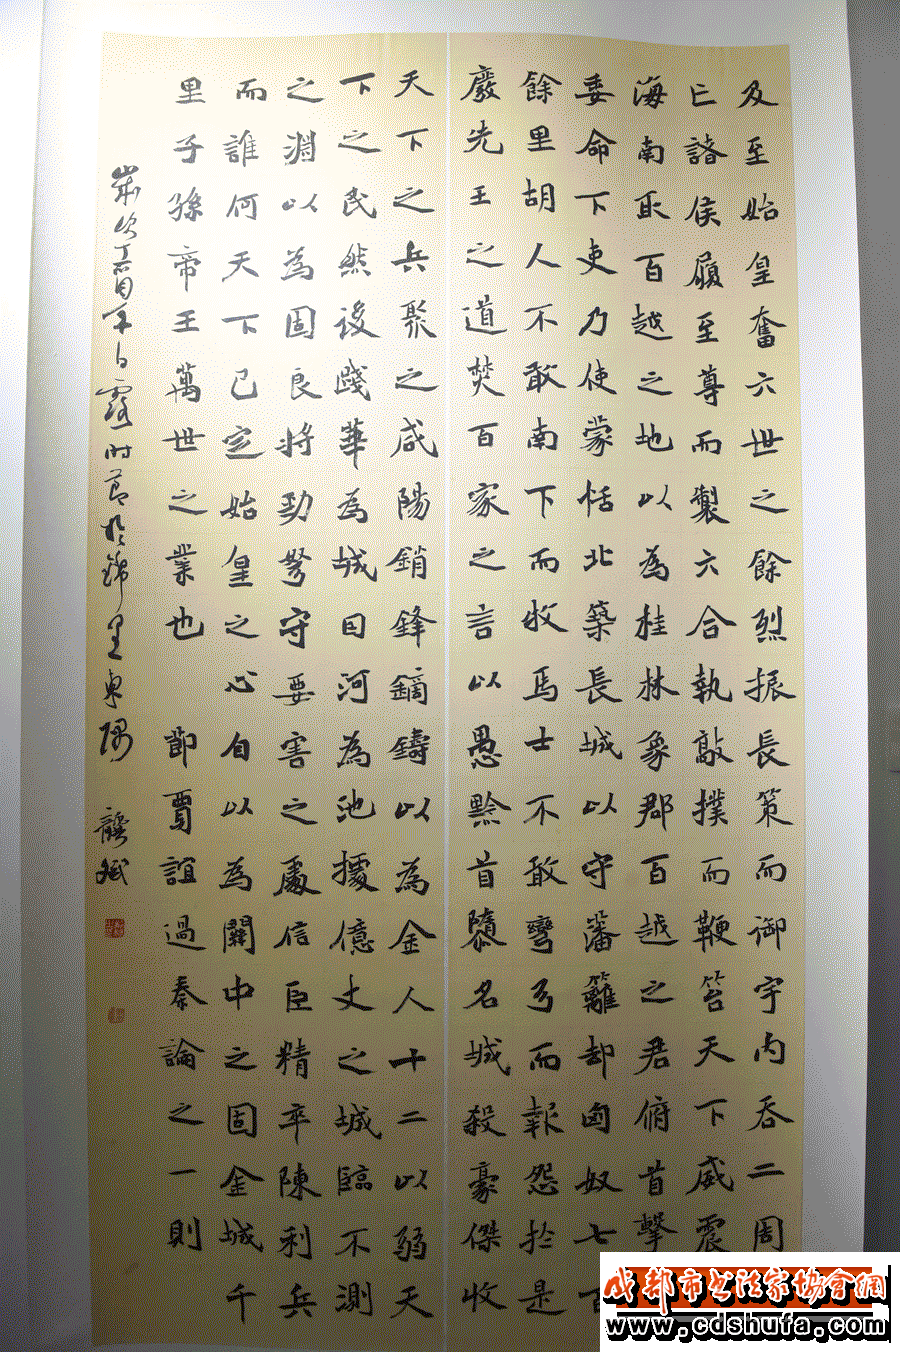 及至始皇奮六世之餘烈振長策而御宇内吞二周
亡諸侯履至尊而製六合執敲撲而鞭笞天下威震
海南取百越之地以為桂林象郡百越之君俯首擊
委命下吏乃使蒙恬北築長城以守藩籬却匈奴七百
餘里胡人不敢南下而牧馬士不敢彎弓而報怨於是
廢先王之道焚百家之言以愚黔首隳名城殺豪傑收
天下之兵聚之咸陽銷鋒鏑鑄以為金人十二以弱天
下之民然後踐華為城因河為池據億丈之城臨不測
之淵以為固良將勁弩守要害之處信臣精卒陳利兵
而誰何天下已定始皇之心自以為關中之固金城千
里子孫帝王萬世之業也 節賈誼過秦論之一則
歲次丁酉年白露時節於錦里東隅 龔斌
成都市书法家協會網
www.cdshufa.com